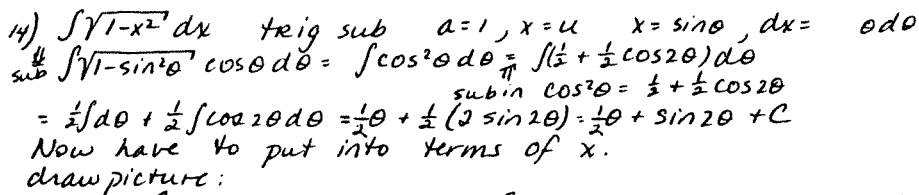 14) ∫√1-x² dx trig sub a=1, x=u x= sinθ, dx= θdθ
sub ∫√1-sin²θ cosθdθ = ∫cos²θdθ = ∫(½ + ½ cos2θ)dθ
sub in cos²θ = ½ + ½ cos2θ
= ½∫dθ + ½∫cos2θdθ = ½θ + ½(2 sin2θ) = ½θ + sin2θ + C
Now have to put into terms of x.
draw picture: